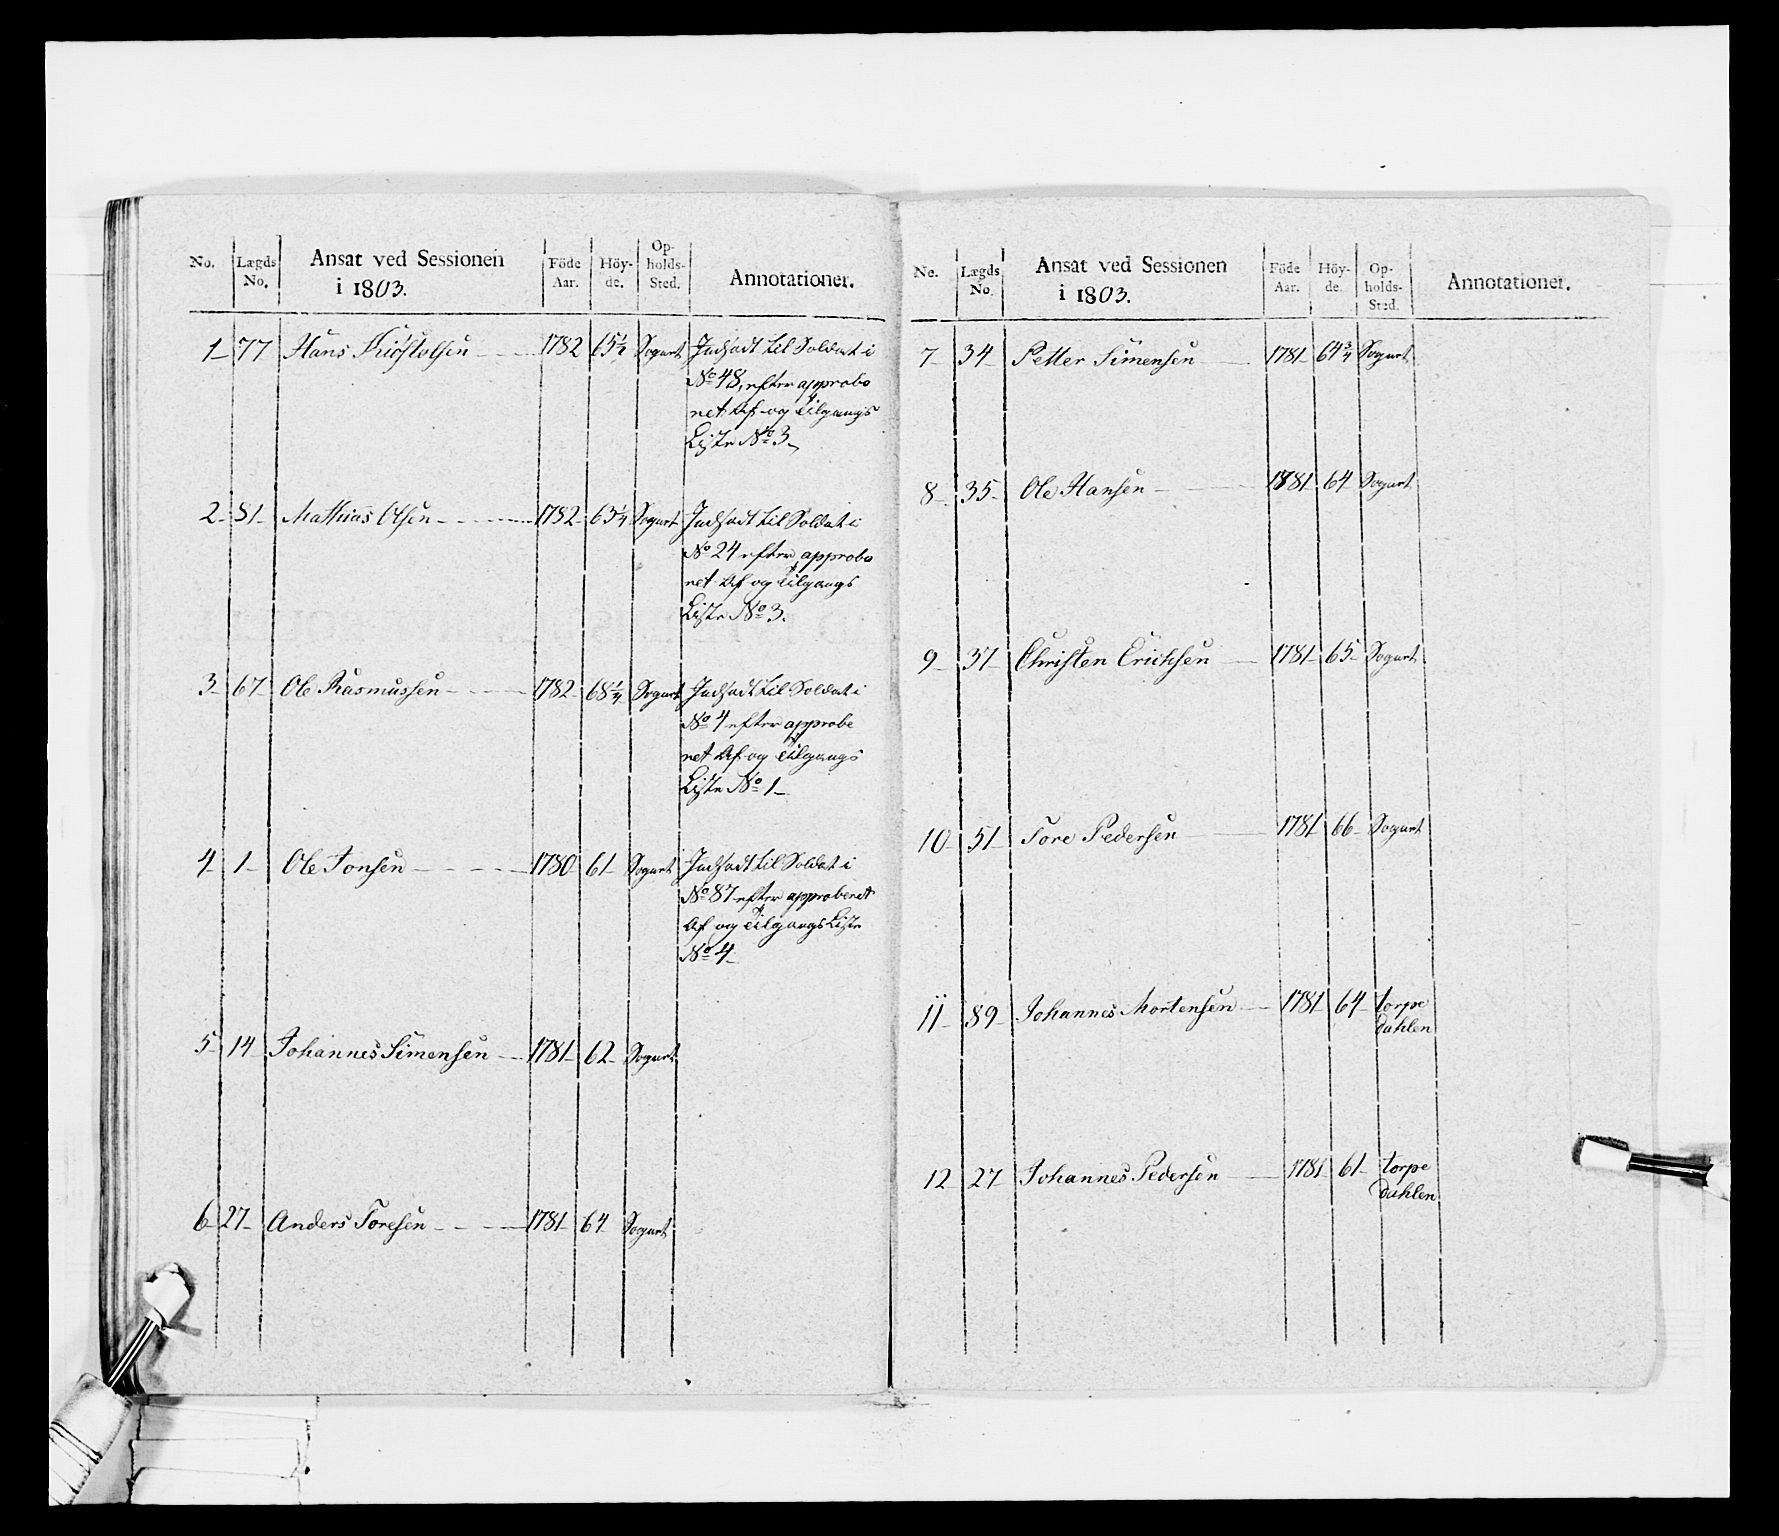 No. Lægds No. Ansat ved Sessionen i 1803. Föde Aar. Höyde. Opholds-Sted. Annotationer.
1 77 Hans 1782 65½ Sogart Indsadt til Soldat i
No 48, efter approbe
net Af og Tilgangs
Liste No 3
2 81 Mathias Olsen 1782 63¼ Sogart Indsadt til Soldat i
No 24 efter approbe
net Af og Tilgangs
Liste No 3.
3 67 Ole Rasmussen 1782 68¼ Sogart Indsadt til Soldat i
No 4 efter approbe
net Af og Tilgangs
Liste No 1
4 1 Ole Jonsen 1780 61 Sogart Indsadt til Soldat i
No 87 efter approberet
Af og Tilgangs Liste
No 4
5 14 Johannes Simensen 1781 62 Sogart
6 27 Anders Toresen 1781 64 Sogart
No. Lægds No. Ansat ved Sessionen i 1803. Föde Aar. Höyde. Opholds-Sted. Annotationer.
7 34 Petter Simensen 1781 64¾ Sogart
8 35 Ole Hansen 1781 64 Sogart
9 37 Christen Erichsen 1781 65 Sogart
10 51 Tore Pedersen 1781 66 Sogart
11 89 Johannes Mortensen 1781 64 torpe
dahlen
12 27 Johannes Pedersen 1781 61 torpe
dahlen